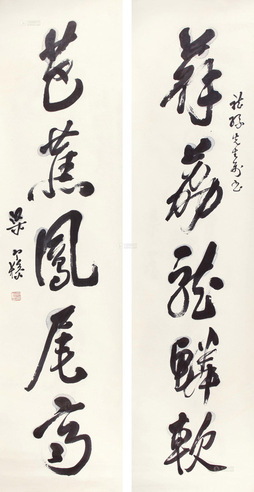 薜荔龍鱗軟
先生
芭蕉鳳尾高